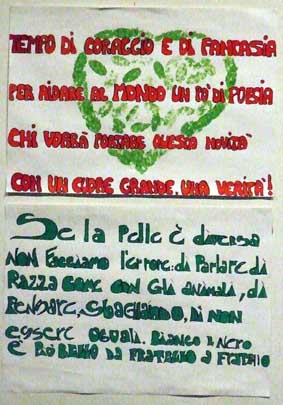 TEMPO DI CORAGGIO E DI FANTASIA
PER RIDARE AL MONDO UN PO' DI POESIA
CHI VORRÀ PORTARE QUESTA NOVITÀ
CON UN CUORE GRANDE. UNA VERITÀ!
Se la Pelle è diversa
NON FACCIAMO l'ERRORE: di PARLARE di
RAZZA COME CON GLI ANIMALI, DI
PENSARE, SBAGLIANDO, DI NON
ESSERE UGUALI. BIANCO E NERO
È PIÙ BELLO DA FRATELLO A FRATELLO